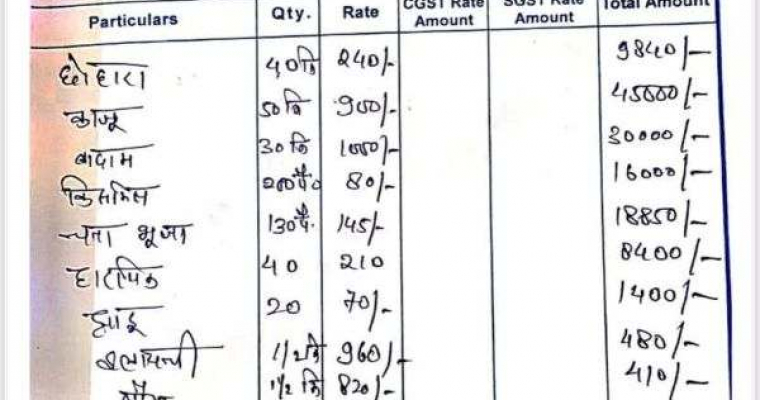 Particulars Qty. Rate CGST Rate Amount SGST Rate Amount Total Amount
छोहारा 40कि 240/- 9840/-
काजू 50कि 900/- 45000/-
बादाम 30कि 1000/- 30000/-
किसमिस 200पै० 80/- 16000/-
चना भूजा 130पै. 145/- 18850/-
हारपिक 40 210 8400/-
झाडू 20 70/- 1400/-
इलायची 1/2कि 960/- 480/-
1/2 कि 820/- 410/-